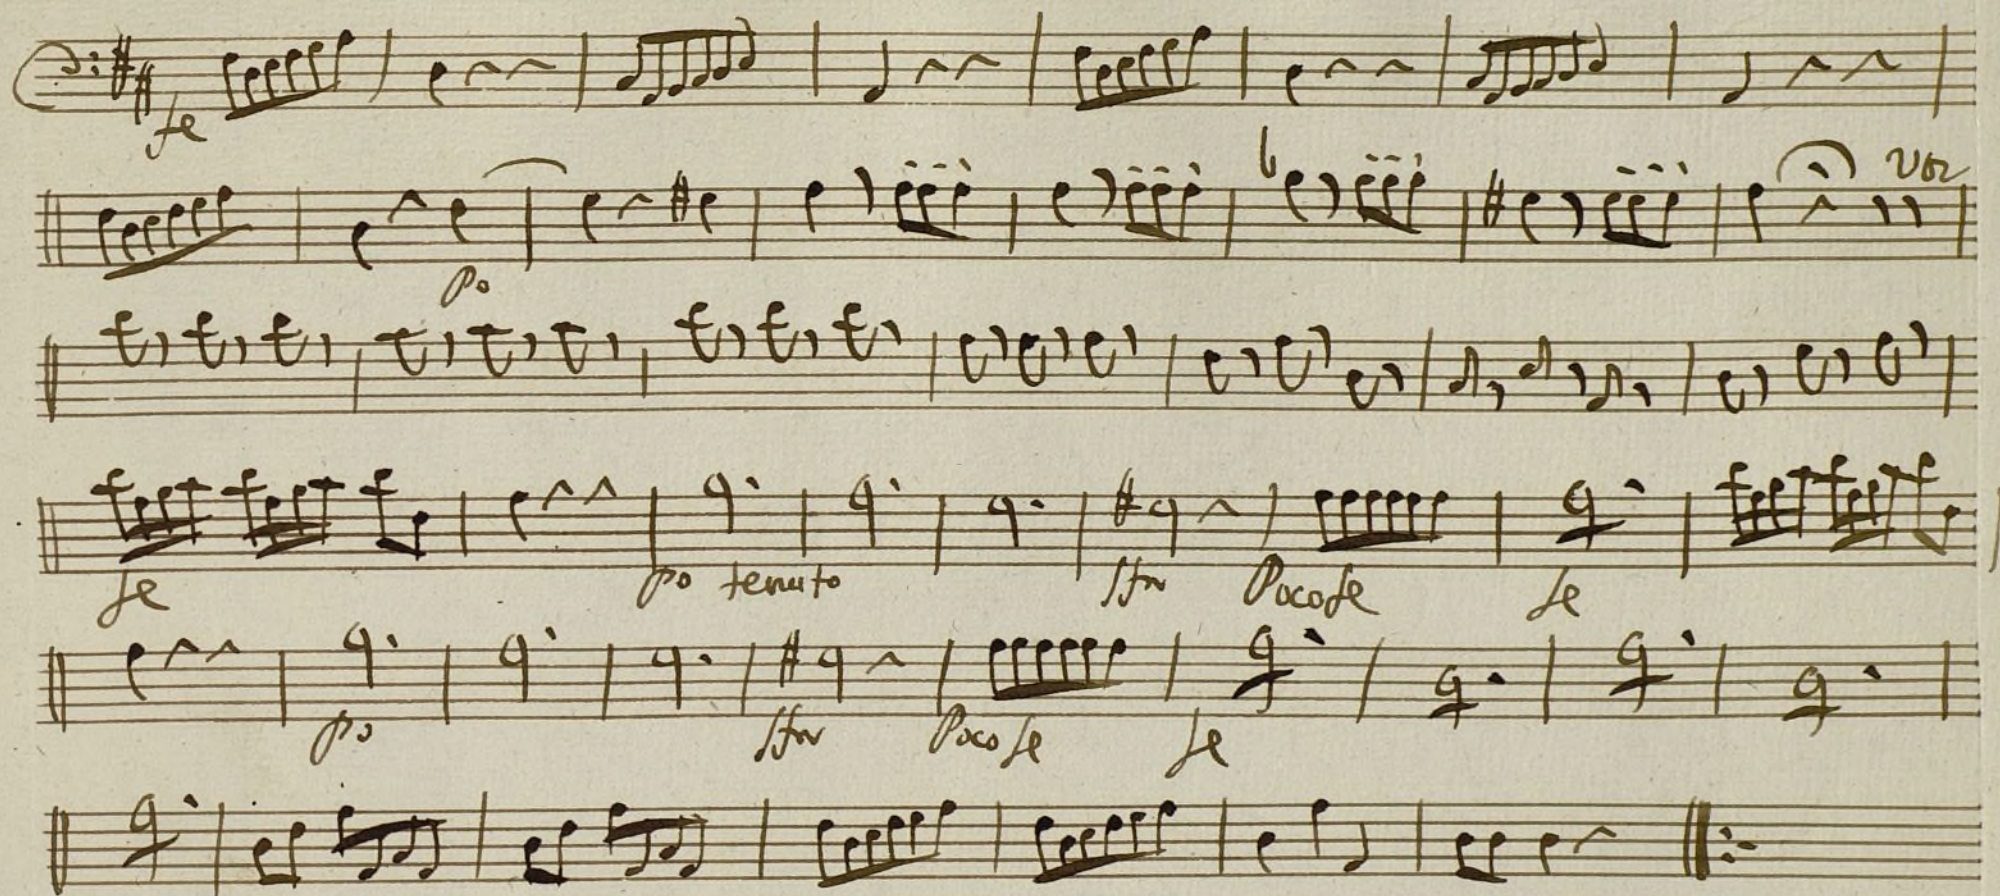 fe
voz
Po
fe po tenuto sfor Poco fe fe
po sfor Poco fe fe